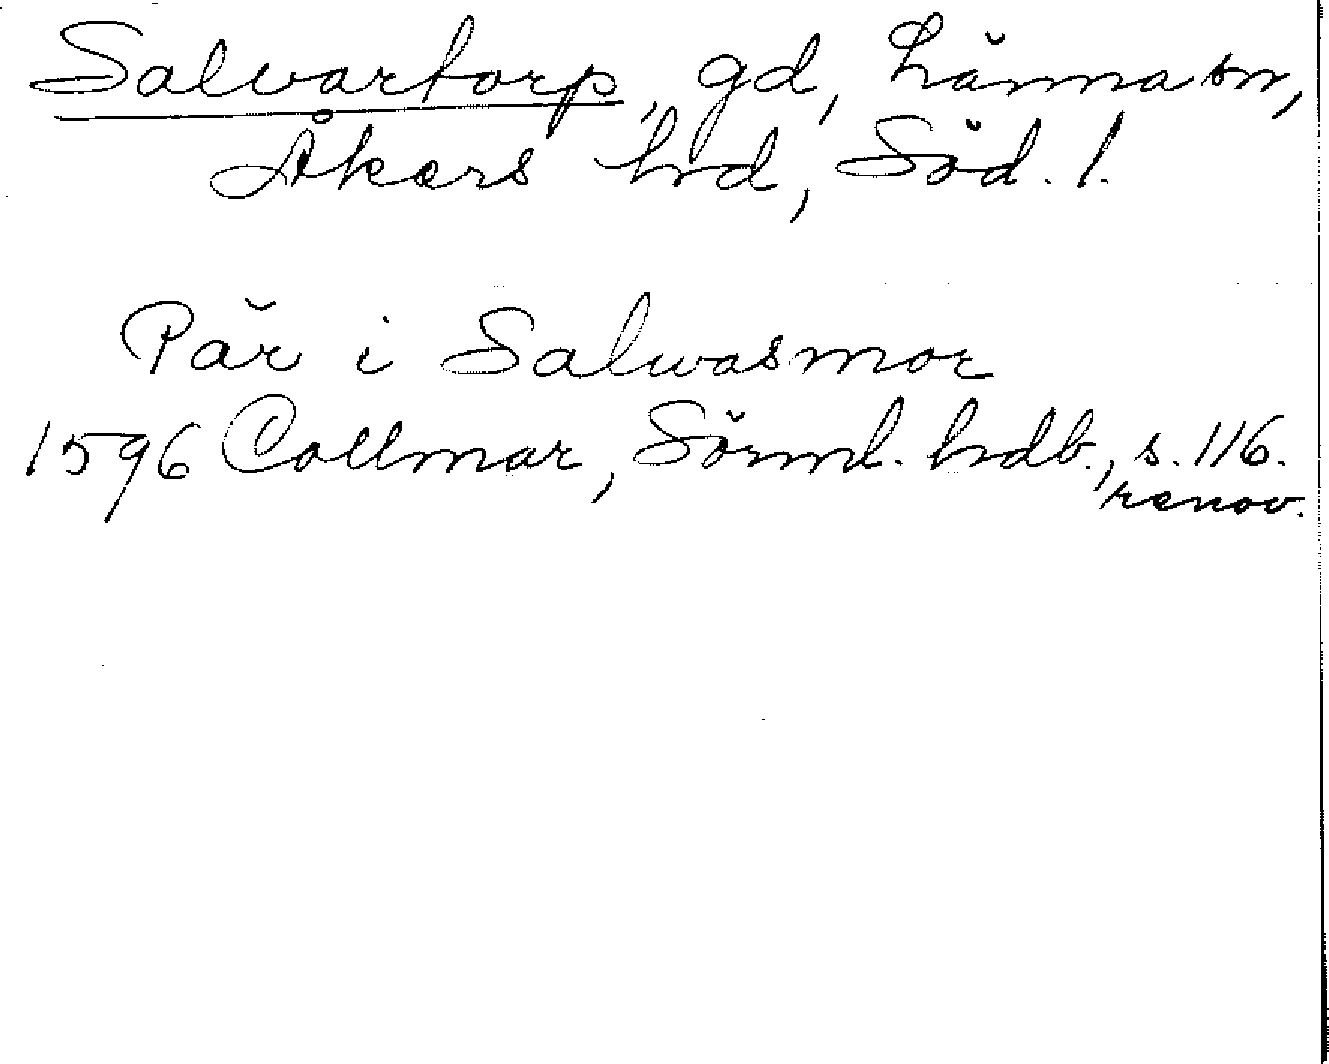 Salvartorp, gd, Länna sn,
Åkers hrd, Söd. l.
Pär i Salwasmor
1596 Collmar, Sörml. hrdb., s. 116.
renov.